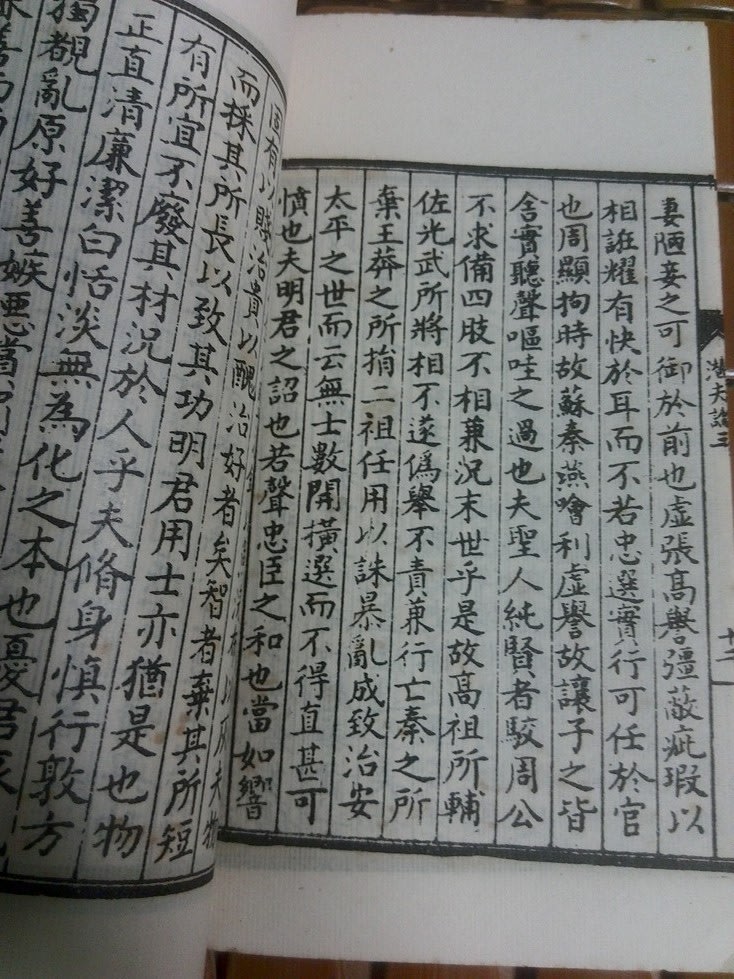 潜夫論三
十二
妻陋妾之可御於前也虛張髙譽彊蔽疵瑕以
相誑耀有快於耳而不若忠選實行可任於官
也周顯拘時故蘇秦燕噲利虛譽故讓子之皆
舍實聽聲嘔哇之過也夫聖人純賢者駮周公
不求備四肢不相兼況末世乎是故髙祖所輔
佐光武所將相不遂僞舉不責兼行亡秦之所
棄王莽之所捐二祖任用以誅暴亂成致治安
太平之世而云無士數開橫選而不得直甚可
憤也夫明君之詔也若聲忠臣之和也當如響
夫物
固有以賤治貴以醜治好者矣智者棄其所短
而採其所長以致其功明君用士亦猶是也物
有所宜不廢其材況於人乎夫脩身慎行敦方
正直清廉潔白恬淡無為化之本也憂君哀
獨覩亂原好善嫉惡賞